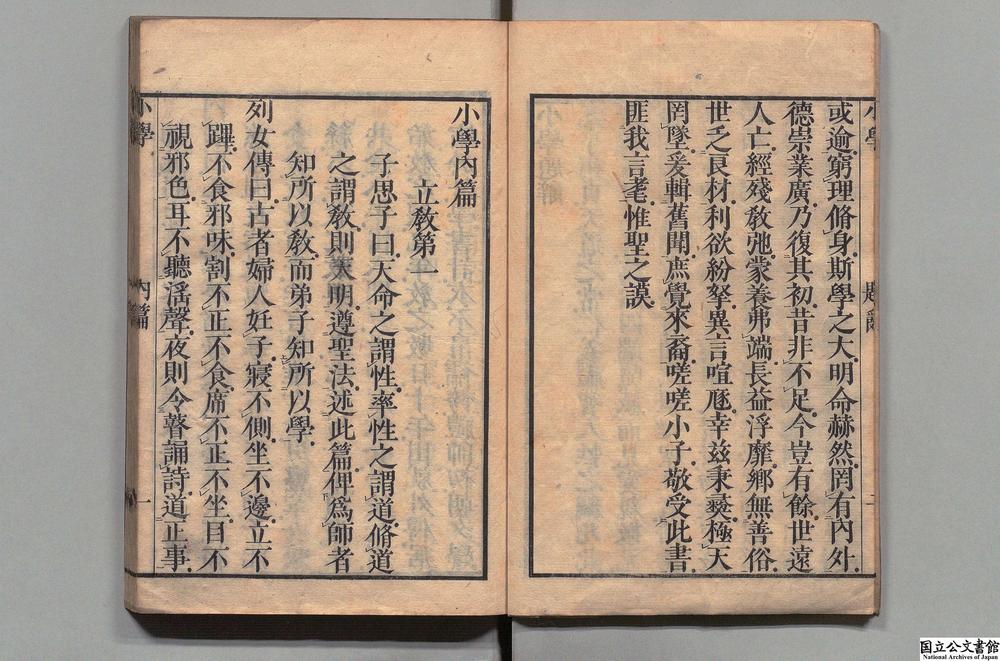 或逾窮理脩身斯學之大明命赫然罔有內外
德崇業廣乃復其初昔非不足今豈有餘世遠
人亡經殘敎弛蒙養弗端長益浮靡鄕無善俗
世乏良材利欲紛拏異言喧豗幸玆秉彛極天
罔墜爰輯舊聞庶覺來裔嗟嗟小子敬受此書
匪我言耄惟聖之謨
小學內篇
立敎第一
子思子曰天命之謂性率性之謂道脩道
之謂敎則天明遵聖法述此篇俾爲師者
知所以敎而弟子知所以學
列女傳曰古者婦人妊子寢不側坐不邊立不
蹕不食邪味割不正不食席不正不坐目不
視邪色耳不聽淫聲夜則令瞽誦詩道正事
小學 內篇 一
国立公文書館
National Archives of Japan